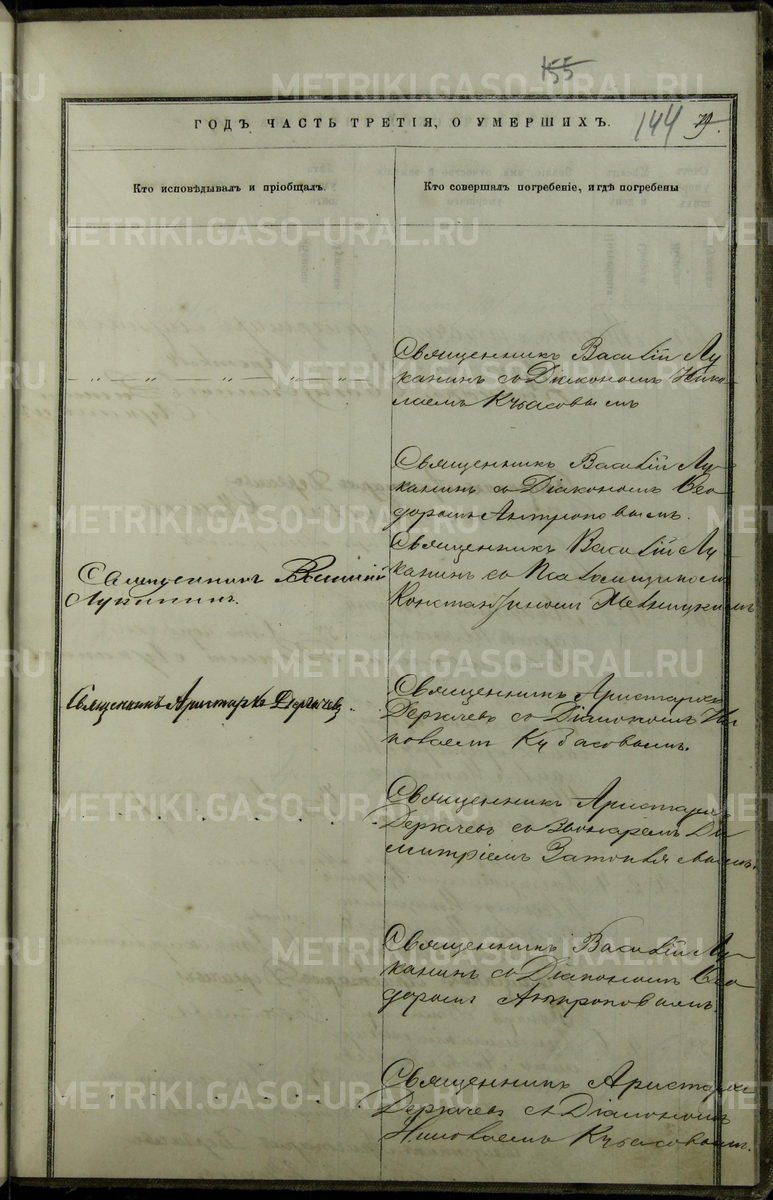 155
144 79.
ГОДЪ ЧАСТЬ ТРЕТІЯ, О УМЕРШИХЪ.
Кто исповѣдывалъ и пріобщалъ.
Кто совершалъ погребеніе, и гдѣ погребены
Священникъ Василій Лу
канинъ со Діакономъ Нико-
лаемъ Кубасовымъ
Священникъ Василій Лу-
канинъ со Діакономъ Ѳео
доромъ Антроповымъ.
Священникъ Василій
Луканинъ.
Священникъ Василій Лу
канинъ со Псаломщикомъ
Константиномъ
Священникъ Аристархъ Деркачевъ.
Священникъ Аристархъ
Деркачевъ со Діакономъ Ни
колаемъ Кубасовымъ.
Священникъ Аристархъ
Деркачевъ со Звонаремъ Ди
митріемъ
Священникъ Василій Лу-
канинъ со Діакономъ Ѳео
доромъ Антроповымъ.
Священникъ Аристархъ
Деркачевъ съ Діакономъ
Николаемъ Кубасовымъ.
METRIKI.GASO-URAL.RU